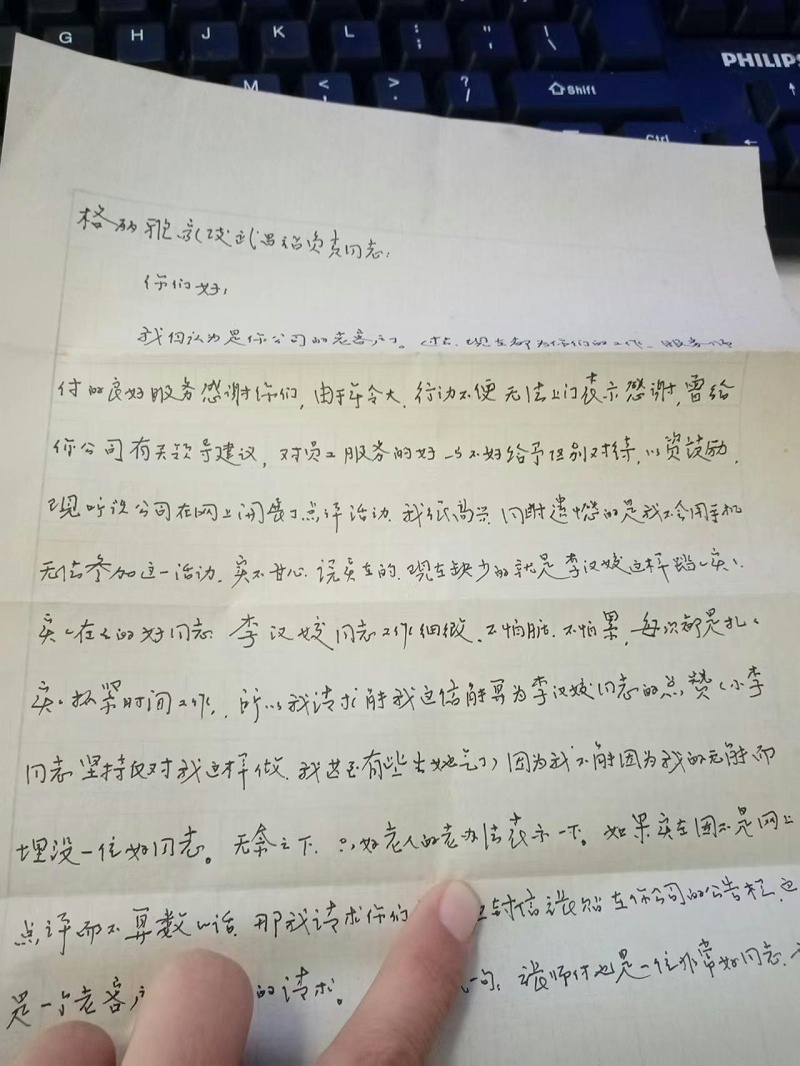 G H J K L : ; " ' | \
M < , > . ? / Shift
PHILIPS
Ctrl
格丽雅家政武昌站负责同志:
你们好,
我自认为是你公司的老客户。 现在都为你们的工作、服务
付的良好服务感谢你们,由于年令大,行动不便无法上门表示感谢,曾给
你公司有关领导建议,对员工服务的好与不好给予区别对待,以资鼓励,
现听说公司在网上开展了点评活动,我很高兴,同时遗憾的是我不会用手机
无法参加这一活动,实不甘心,说实在的,现在缺少的就是李汉姣这样踏踏实实、
实实在在的好同志 李汉姣同志工作细微、不怕脏、不怕累,每次都是扎扎
实实抓紧时间工作,所以我请求能我这信能算为李汉姣同志的点赞(小李
同志坚持反对我这样做,我甚至有些生她气了)因为我不能因为我的无能而
埋没一位好同志。无奈之下,只好老人的老办法表示一下。如果实在因不是网上
点评而不算数的话,那我请求你们 封信张贴在你公司的公告栏,也
是一个老客户 的请求。 一句,张师付也是一位非常好同志,